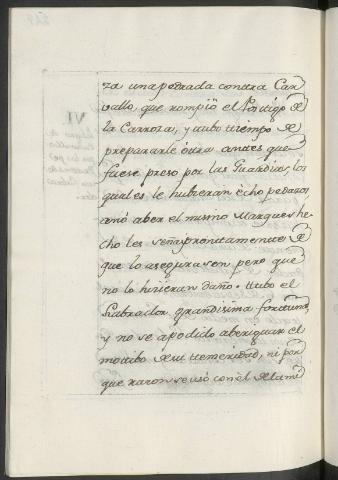 za una pedrada contra Car
vallo, que rompiò el Postigo de
la Carroza, y tubo tiempo de
prepararle òtra antes que
fuese preso por las Guardias, los
quales le hubieran ècho pedazos
anò aber el mismo Marques he
cho les señas prontamente de
que lo asegurasen pero que
no lo hisieran daño. tubo el
Labrador grandisima fortuna,
y no se apodido aberiguar el
motibo de su temeridad, ni por
que razon se usò con èl de la mi